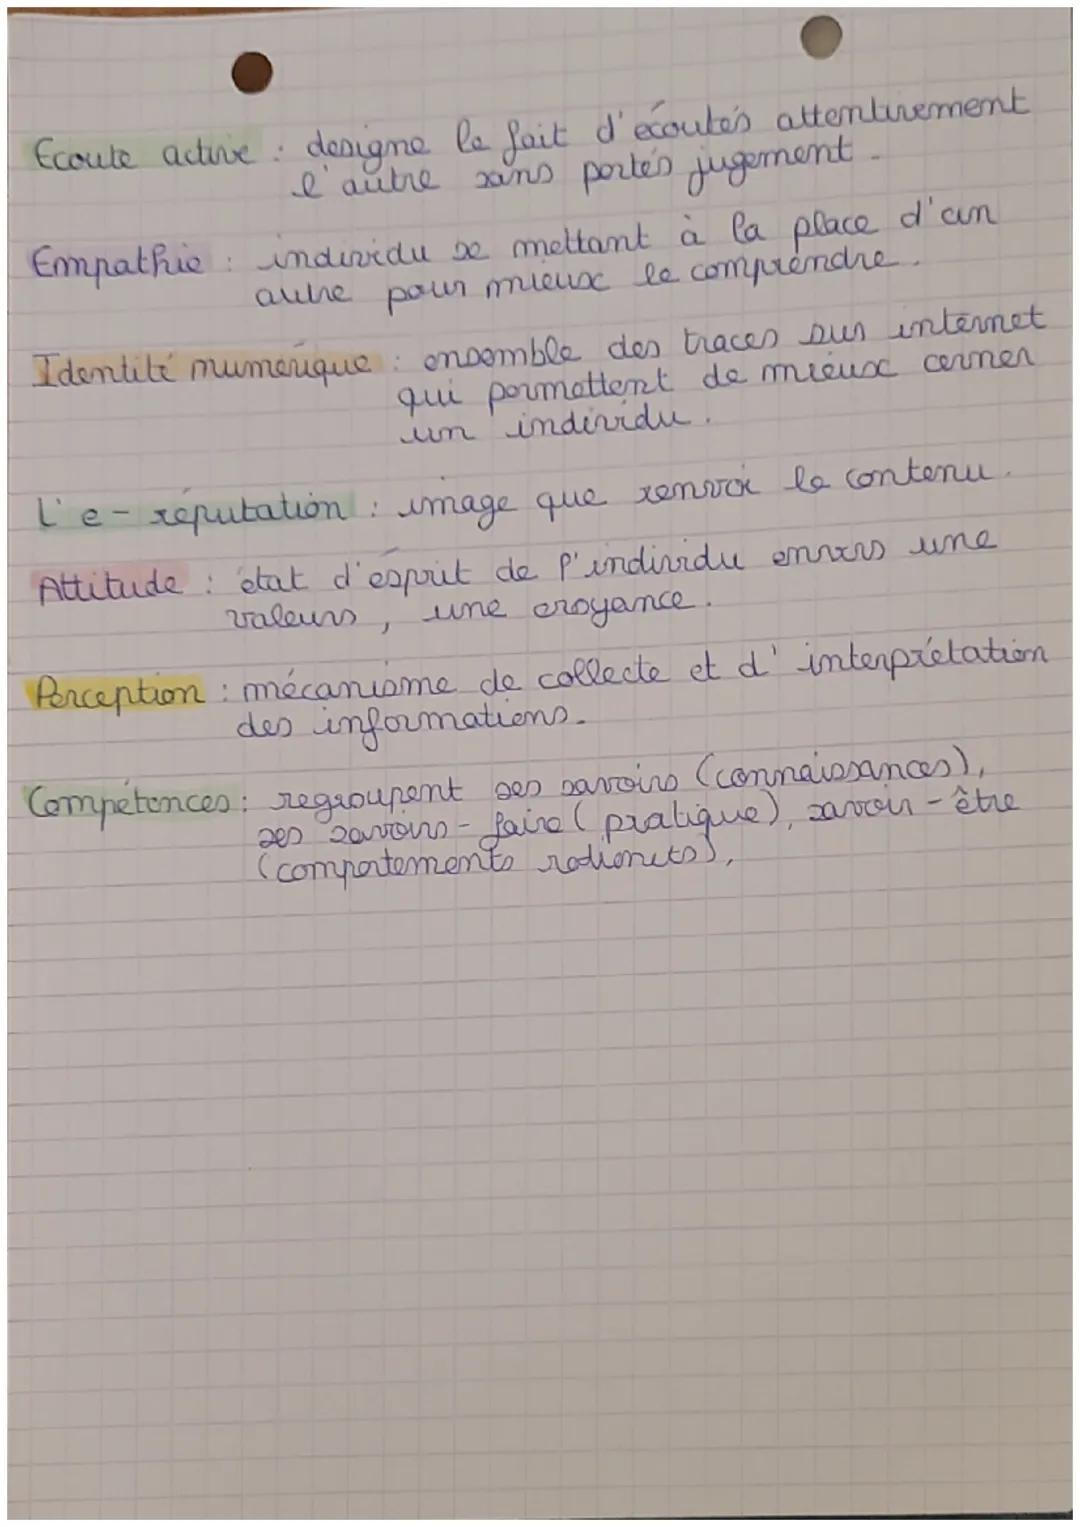 Ecoute active : designe le fait d'écouter attentivement
l'autre sans porter jugement.
Empathie : individu se mettant à la place d'un
autre pour mieux le comprendre.
Identité numérique : ensemble des traces sur internet
qui permettent de mieux cerner
un individu.
L'e-réputation : image que renvoi le contenu.
Attitude : état d'esprit de l'individu envers une
valeurs, une croyance.
Perception : mécanisme de collecte et d'interprétation
des informations.
Compétences : regroupent ses savoirs (connaissances),
ses savoirs-faire (pratique), savoir-être
(comportements